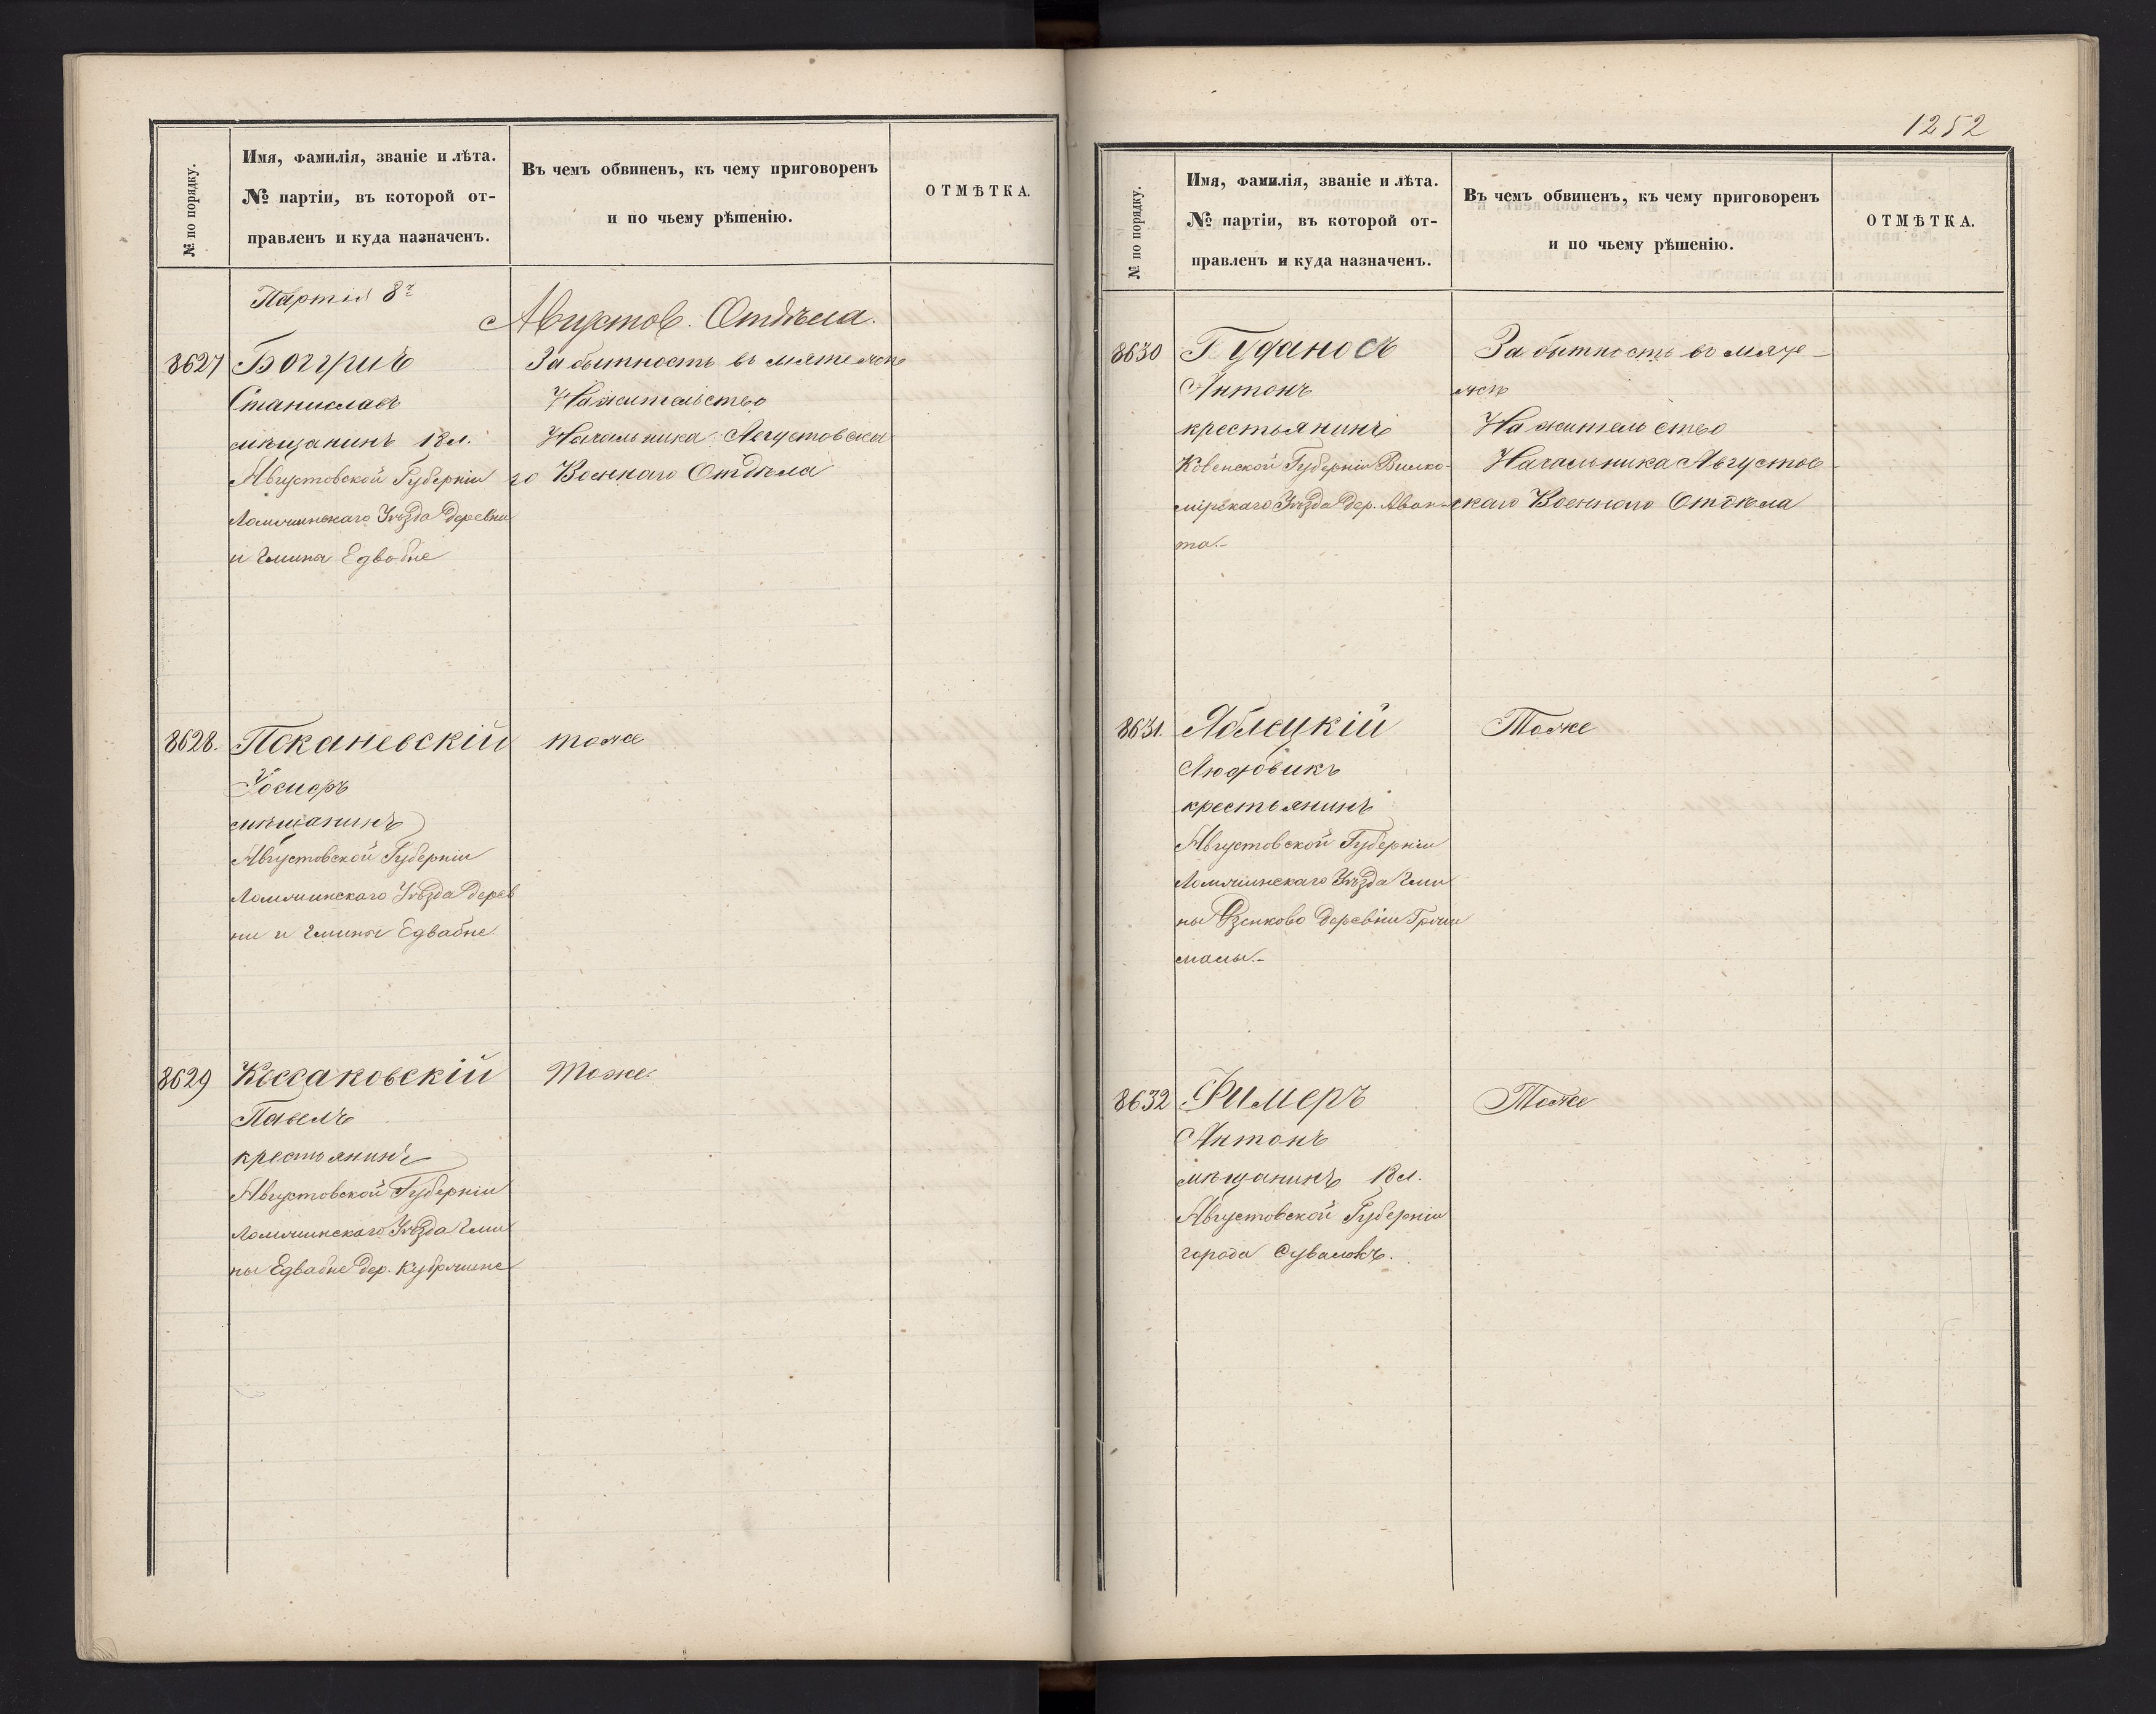 № по порядку.
Имя, фамилія, званіе и лѣта.
№ партіи, въ которой от-
правленъ и куда назначенъ.
Въ чемъ обвиненъ, къ чему приговоренъ
и по чьему рѣшенію.
ОТМѢТКА.
Партія 8я
Августов. Отдѣла.
8627
Станиславъ
мѣщанинъ 18 л.
Августовской Губерніи
Ломжинскаго Уѣзда деревни
и гмина Едвабне
За бытность въ мятежѣ
На жительство
Начальника Августовска
го Военнаго Отдѣла
8628.
Поканевскій
Іосифъ
мѣщанинъ
Августовской Губерніи
Ломжинскаго Уѣзда дерев
ни и гмины Едвабне.
тоже
8629
Коссаковскій
Павелъ
крестьянинъ
Августовской Губерніи
Ломжинскаго Уѣзда гми
ны Едвабне дер. Кубржине
Тоже
1252
№ по порядку.
Имя, фамилія, званіе и лѣта.
№ партіи, въ которой от-
правленъ и куда назначенъ.
Въ чемъ обвиненъ, къ чему приговоренъ
и по чьему рѣшенію.
ОТМѢТКА.
8630
Гуданосъ
Антонъ
крестьянинъ
Ковенской Губерніи Вилко-
мірскаго Уѣзда дер. Аван-
та.-
За бытность въ мяте-
жѣ
На жительство
Начальника Августов-
скаго Военнаго Отдѣла
8631.
Яблецкій
Людовикъ
крестьянинъ
Августовской Губерніи
Ломжинскаго Уѣзда гми
ны деревни Гржи
малы.-
Тоже
8632
Фимеръ
Антонъ
мѣщанинъ 18 л.
Августовской Губерніи
города Сувалокъ.
Тоже